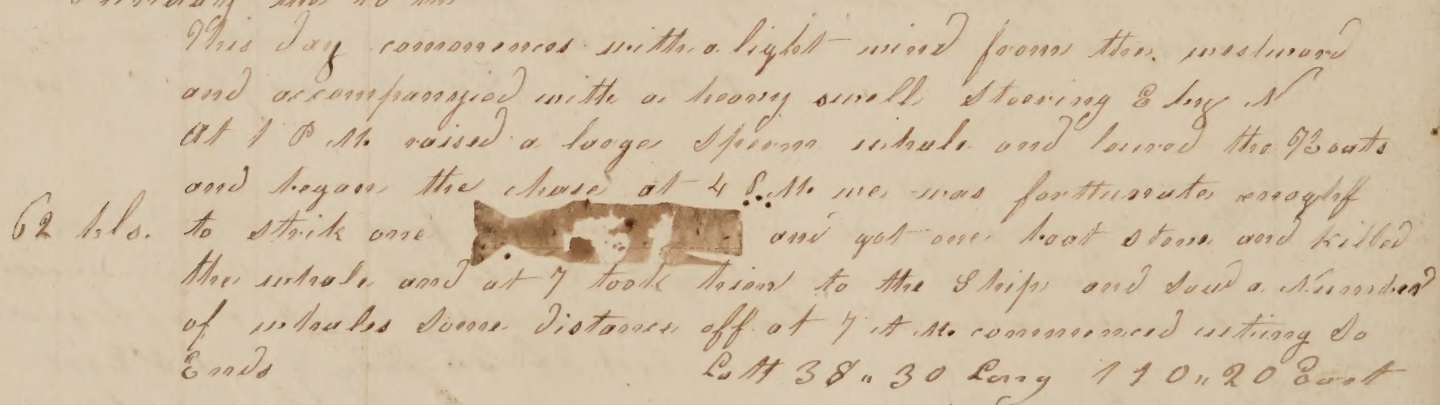 This day commences with a light wind from the westward
and accompanyied with a heavy swell Steering E by N
At 1 P M raised a large Sperm whale and lowred the Boats
and began the chase at 4 P. M we was forttunate enoughf
62 bls. to strik one and got one boat stone and killed
the whale and at 7 took him to the Ship and saw a Number
of whales Some distance off at 7 A M. commenced cuting So
Ends Latt 38" 30 Long 110" 20 East